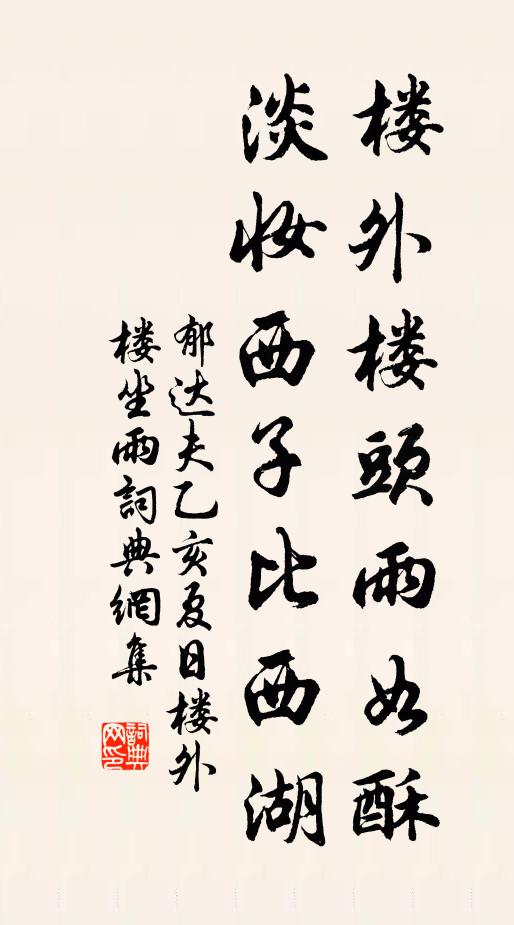 楼外楼頭雨如酥
淡妆西子比西湖
郁达夫乙亥夏日楼外
楼坐雨詞典網集
詞典网印